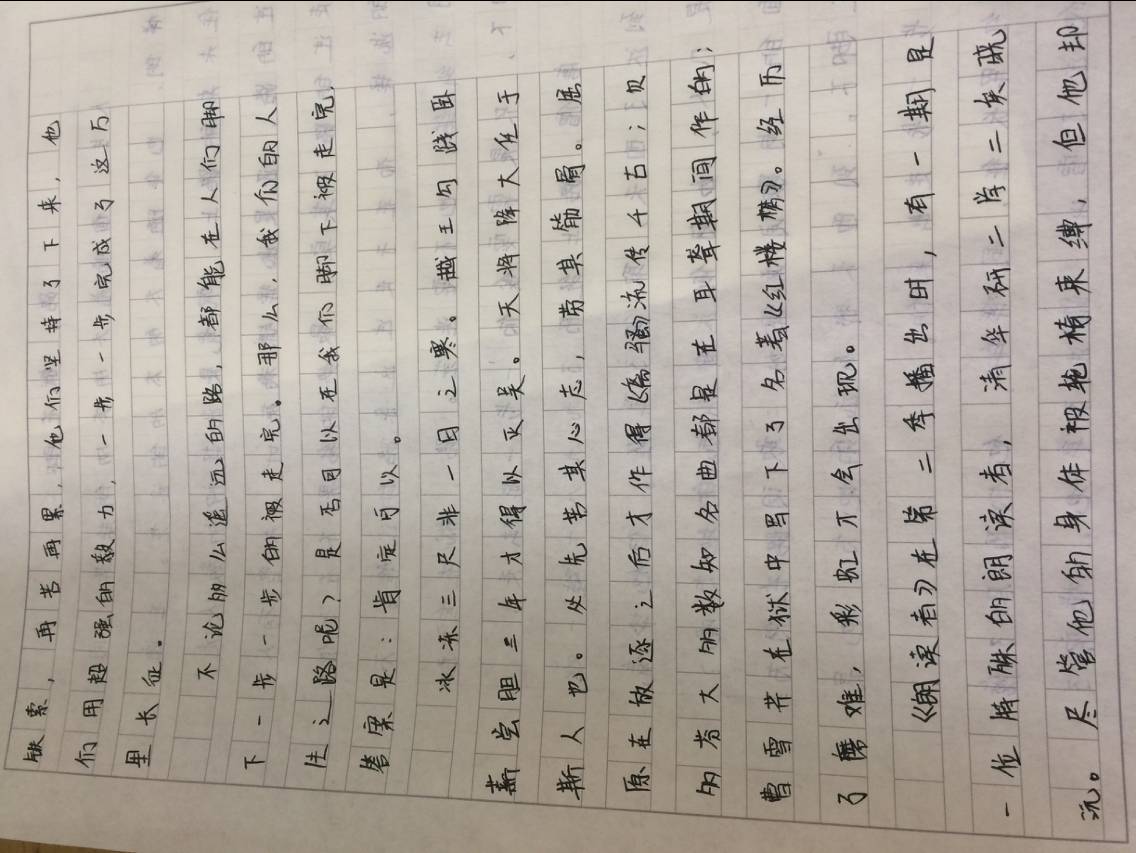 铁索，再苦再累，他们坚持了下来，他
们用超强的毅力，一步一步完成了这万
里长征。
不论多么遥远的路，都能在人们脚
下一步一步的被走完。那么，我们的人
生之路呢？是否可以在我们脚下被走完，
答案是：肯定可以。
冰冻三尺非一日之寒。越王勾践卧
薪尝胆三年才得以灭吴。天将降大任于
斯人也。必先苦其心志，劳其筋骨。屈
原在放逐之后才作得《离骚》流传千古；贝
多芬大多数知名曲都是在耳聋期间作的；
曹雪芹在狱中写下了名著《红楼梦》。经历
了磨难，彩虹才会出现。
《朗读者》在第二季播出时，有一期是
一位特殊的朗读者，清华研二学二矣晓
沅。尽管他的身体被轮椅束缚，但他却